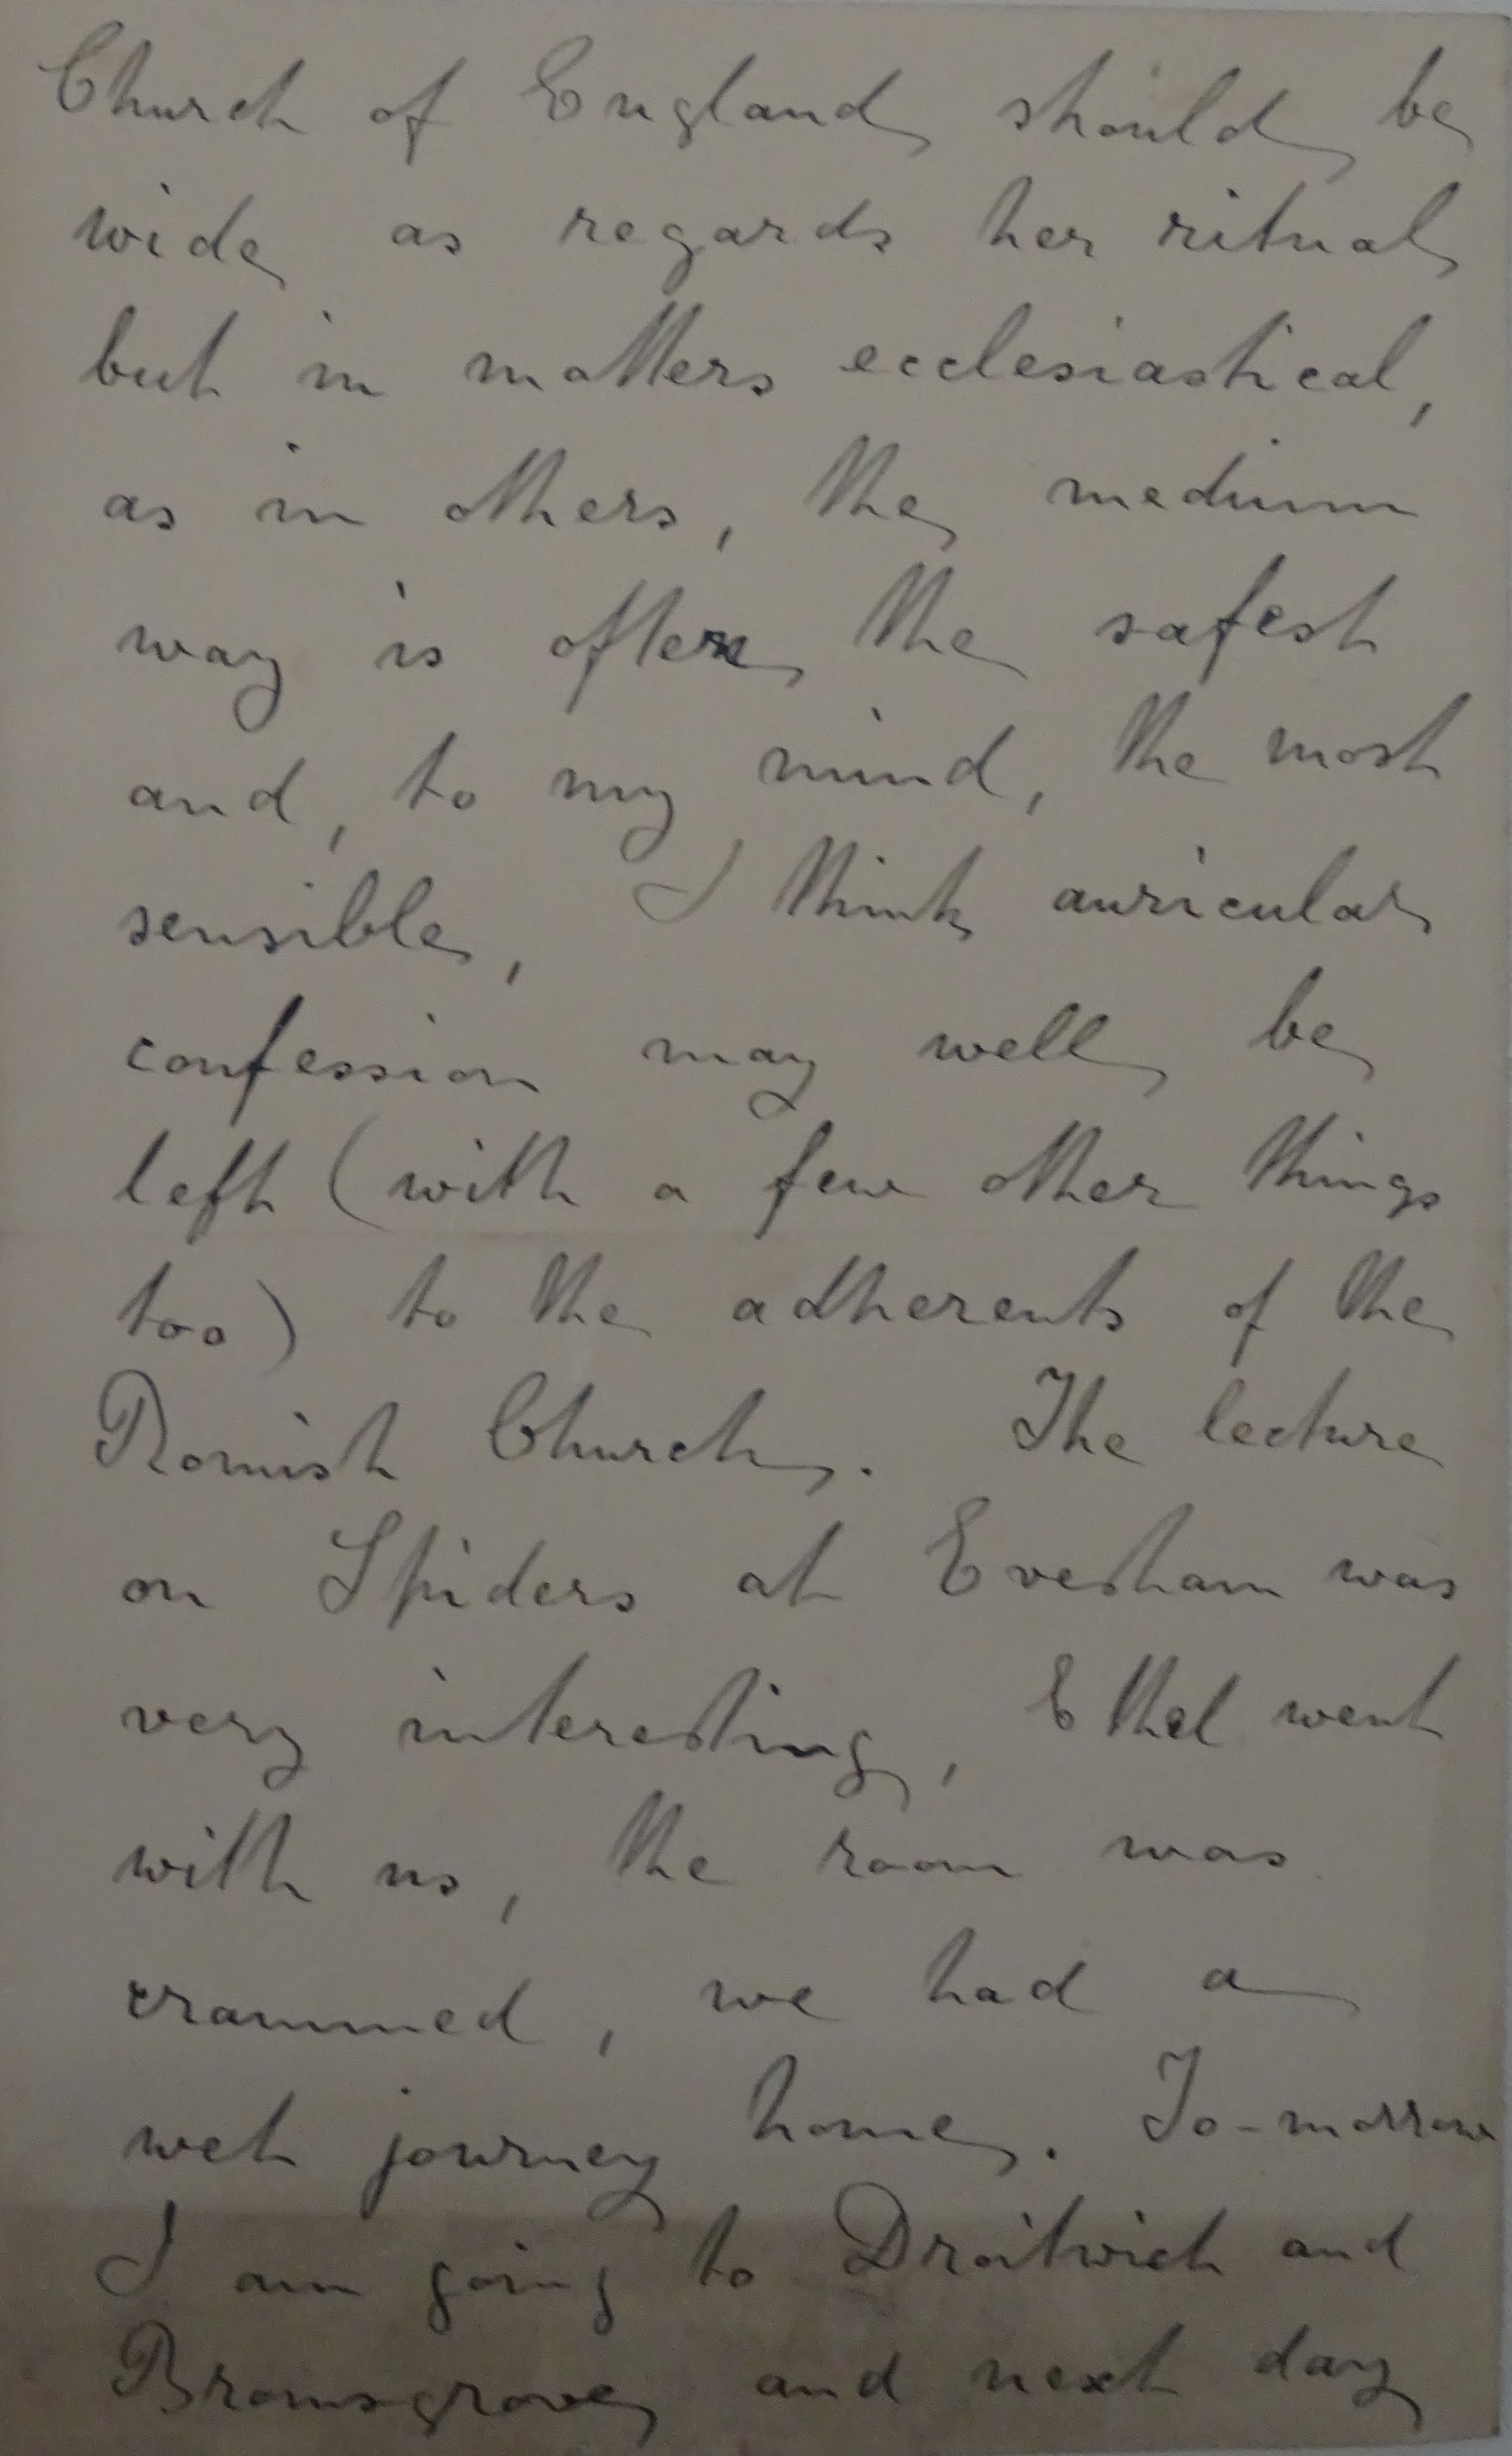 Church of England should be
wide as regards her ritual
but in matters ecclesiastical,
as in others, the medium
way is often the safest
and, to my mind, the most
sensible, I think auricular
confession may well be
left (with a few other things
too) to the adherents of the
Romish Church. The lecture
on Spiders at Evesham was
very interesting, Ethel went
with us, the room was
crammed, we had a
wet journey home. To-morrow
I am going to Droitwich and
Bromsgrove and next day